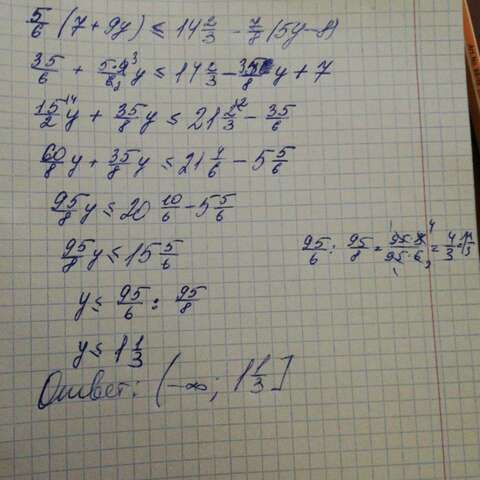 5/6 (7 + 9y) ≤ 14 2/3 - 7/8 (5y - 8)
35/6 + 5·9³/6₂ y ≤ 14 2/3 - 35/8 y + 7
15/2 y + 35/8 y ≤ 21 2/3 - 35/6
60/8 y + 35/8 y ≤ 21 4/6 - 5 5/6
95/8 y ≤ 20 10/6 - 5 5/6
95/8 y ≤ 15 5/6
95/6 : 95/8 = 95·8/95·6 = 4/3 = 1 1/3
y ≤ 95/6 : 95/8
y ≤ 1 1/3
Ответ: (-∞; 1 1/3]